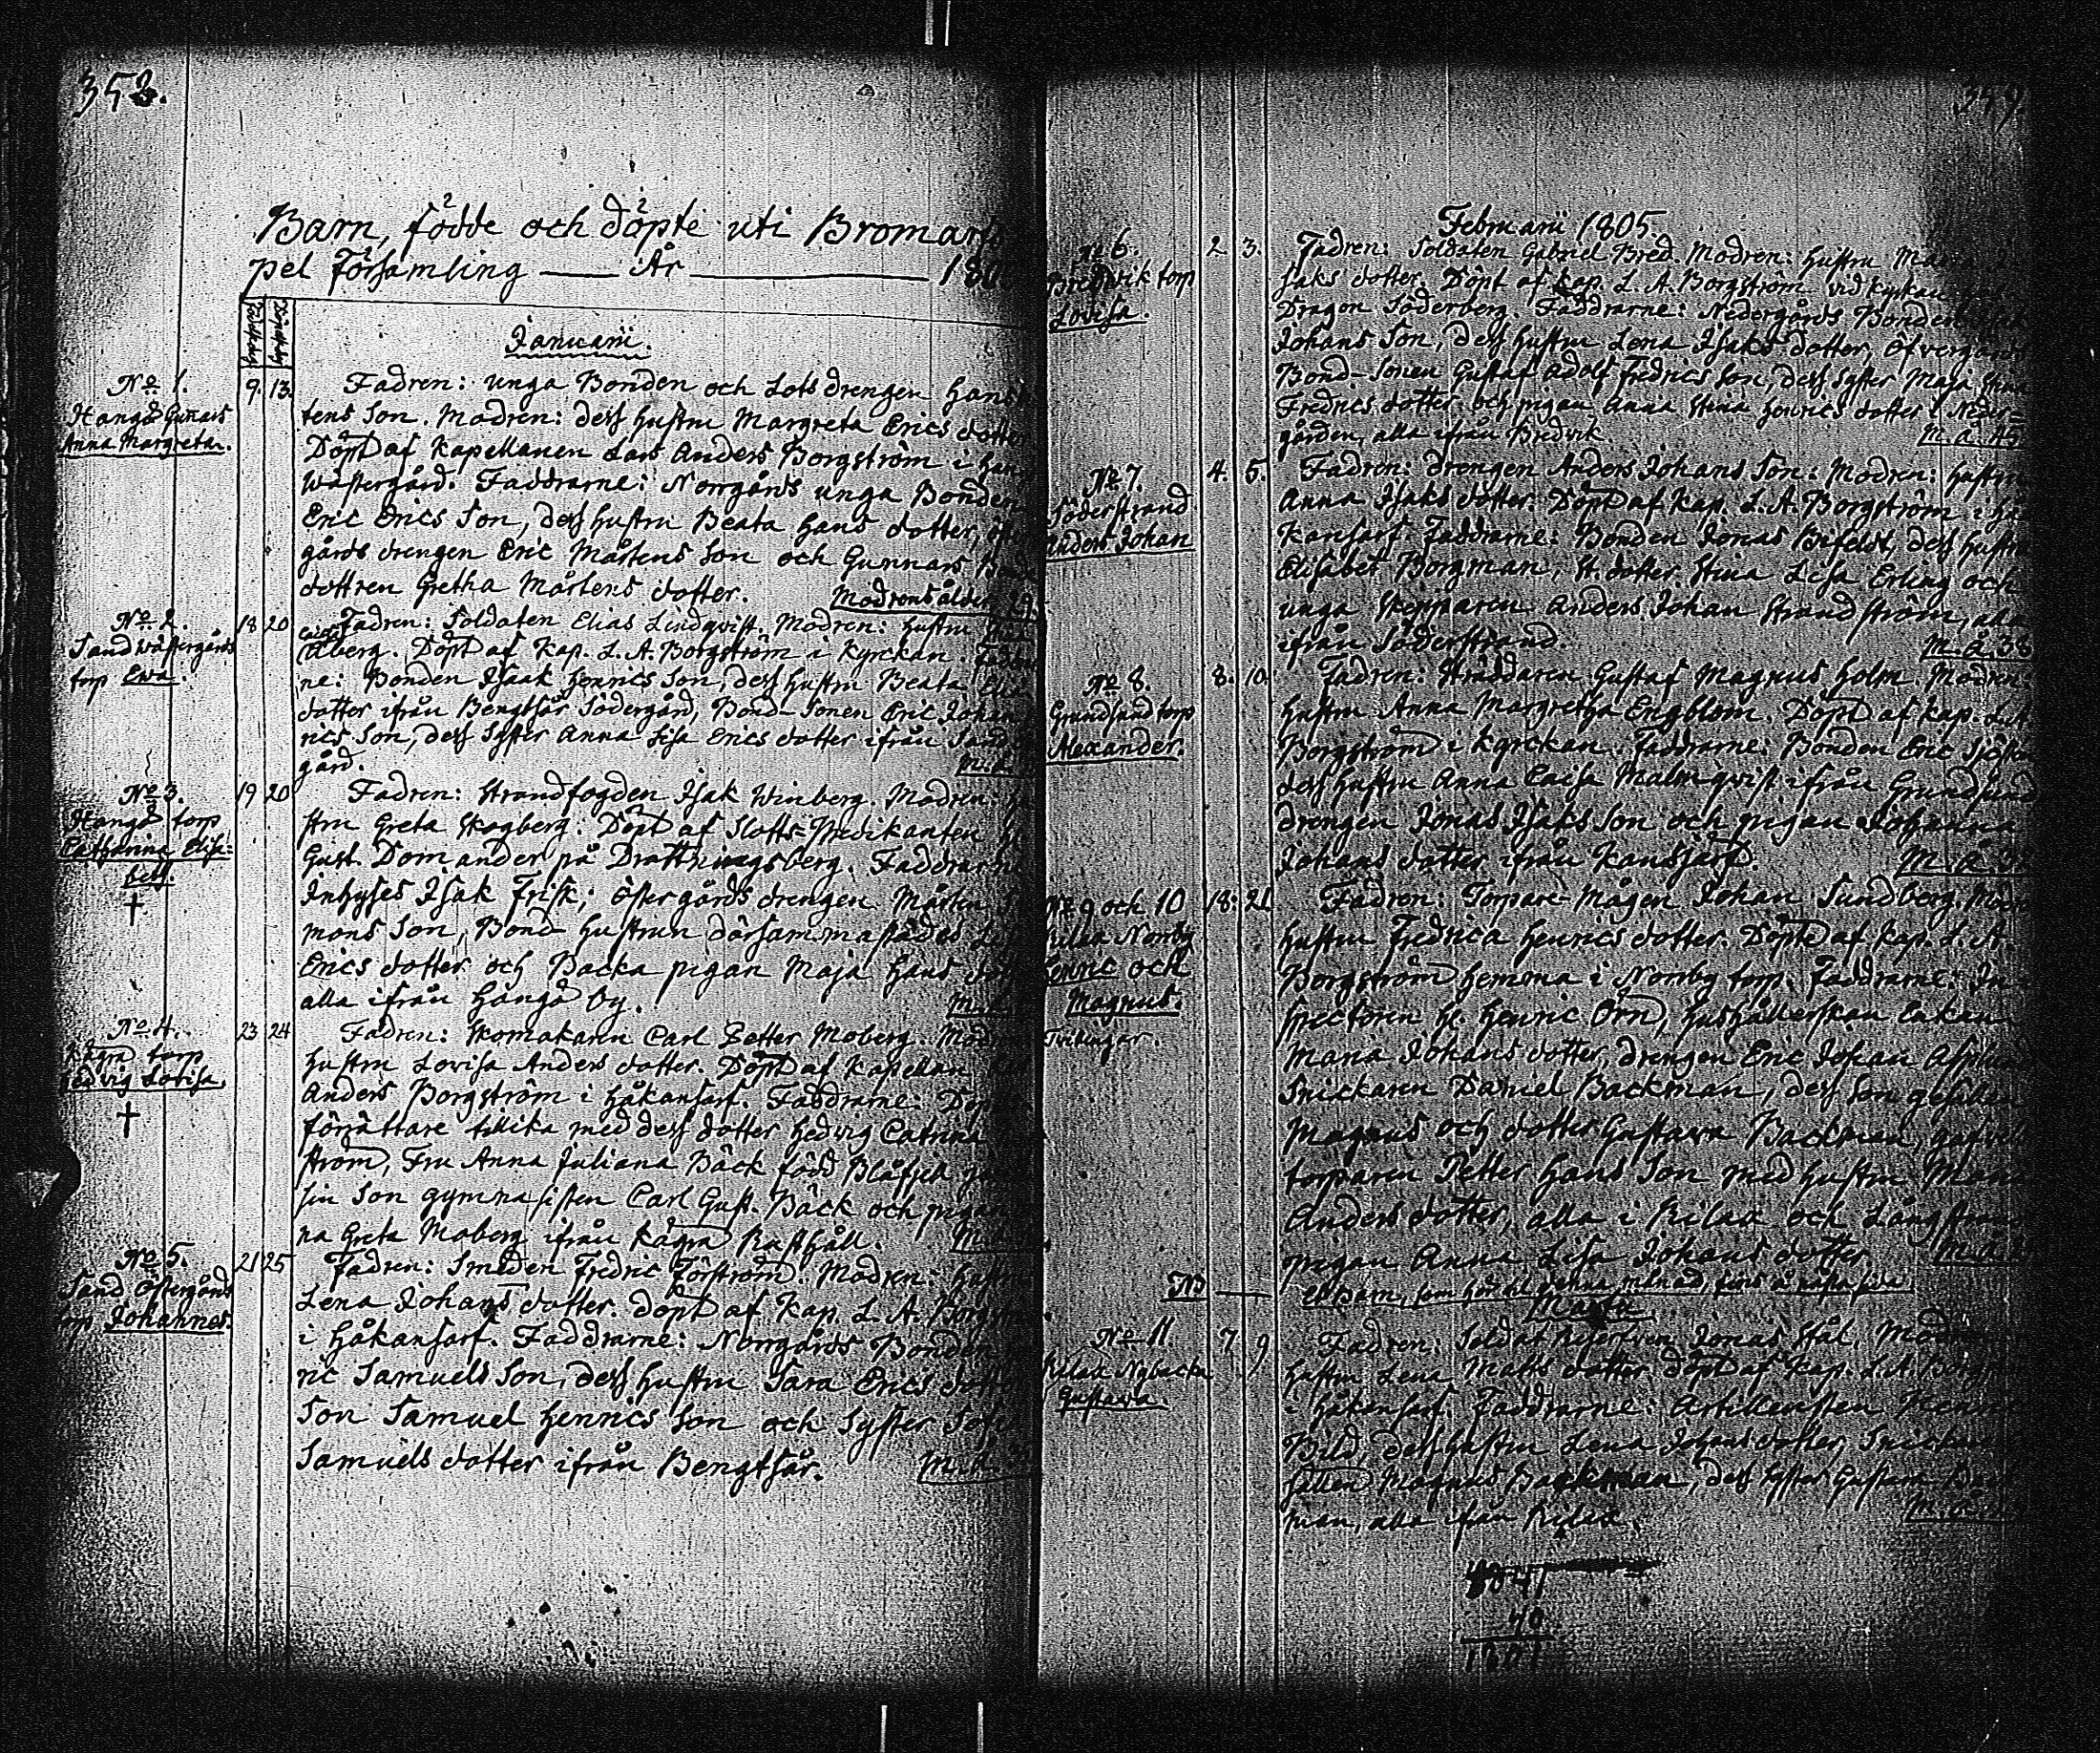 352.
Barn, födde och döpte uti Bromarfs
pel Församling — År — 180
Januarii.
No 1.
Hangö Gunnars
Anna Margreta.
9. 13.
Fadren: unga Bonden och Lots drengen Hans
tens Son. Modren: dess hustru Margreta Erics dotter
Döpt af Kapellanen Lars Anders Borgström i Han
Wästergård. Faddrarne: Norrgårds unga Bonden
Eric Erics Son, dess hustru Beata Hans dotter,
gårds drengen Eric Mårtens Son och Gunnars
dottren Gretha Mårtens dotter. Modrens ålder
No 2.
Sand wästergårds
torp Ewa.
18 20
Fadren: Soldaten Elias Lindqvist. Modren: hustru
Åberg. Döpt af Kap. L. A. Borgström i Kyrckan.
ne: Bonden Isaak Henrics Son, dess hustru Beata
dotter ifrån Bengtsår Södergård, Bond-Sonen Eric Johan
rics Son, dess Syster Anna Lisa Erics dotter ifrån Sand
gård. M. å.
No 3.
Hangö torp
Catharina Elisa=
beth.
†
19 20
Fadren: Strandfogden Isak Winberg. Modren:
stru Greta Skogberg. Döpt af Slotts-Predikanten
Gust. Domander på Drottningsberg. Faddrarne
Inhyses Isak Frisk, östergårds drengen Mårten
mons Son, Bond-hustrun därsammastädes
Erics dotter och Backa pigan Maja Hans
alla ifrån Hångö By. M. å.
No 4.
Kågra torp
Hedvig Lovisa
†
23 24
Fadren: Skomakarn Carl Petter Moberg. Mod
hustru Lovisa Anders dotter. Döpt af Kapellan
Anders Borgström i Håkansarf. Faddrarne: Döp
förrättare tillika med dess dotter Hedvig Catrina
ström, Fru Anna Juliana Bäck född Blåfjell
sin Son gymnasisten Carl Gust. Bäck och pigan
na Greta Moberg ifrån Kågra Rusthåll. M.
No 5.
Sand Östergårds
torp Johannes.
21 25
Fadren: Smeden Fredric Förström. Modren: hustru
Lena Johans dotter. Döpt af Kap. L. A. Borgström
i Håkansarf. Faddrarne: Norrgårds Bonden
ric Samuels Son, dess hustru Sara Erics dotter
Son Samuel Henrics Son och Syster Sofia
Samuels dotter ifrån Bengtsår. M. å.
Februarii 1805.
No 6.
Bredvik torp
Lovisa.
2 3.
Fadren: Soldaten Gabriel Bred. Modren: hustru Maria
saks dotter. Döpt af Kap. L. A. Borgström vid kyrkan
Dragon Söderberg. Faddrarne: Nedergårds Bonden
Johans Son, dess hustru Lena Isaks dotter, Öfvergårds
Bond-Sonen Gustaf Adolf Fredrics Son, dess Syster Maja Stina
Fredrics dotter och pigan Anna Stina Henrics dotter i Neder=
gården, alla ifrån Bredvik. M. å. 45
No 7.
Söderstrand
Anders Johan
4. 5.
Fadren: drengen Anders Johans Son: Modren: hustru
Anna Isaks dotter. Döpt af Kap. L. A. Borgström i Hå
kansarf. Faddrarne: Bonden Jonas Bifeldt, dess hustru
Elisabet Borgman, St. dotter Stina Lisa Erling och
unga Skepparen Anders Johan Strandström, alla
ifrån Söderstrand. M. å. 38
No 8.
Grundsund torp
Alexander.
8. 10.
Fadren: Skräddaren Gustaf Magnus Holm. Modren
hustru Anna Margretha Engblom. Döpt af Kap. L. A.
Borgström i Kyrckan. Faddrarne: Bonden Eric
dess hustru Anna Caisa Malmqvist ifrån Grundsund
drengen Jonas Isaks Son och pigan Johanna
Johans dotter ifrån Kansjärf. M. å.
No 9 och 10
Rilax Norrby
Henric och
Magnus.
Tvillingar.
18. 21.
Fadren: Torpare-Mågen Johan Sundberg. Modren
hustru Fredrica Henrics dotter. Döpte af Kap. L. A.
Borgström hemma i Norrby torp. Faddrarne: In=
spectoren H. Henric Örn, hushållerskan
Maria Johans dotter, drengen Eric Johan
Snickaren Daniel Backman, dess Son gesällen
Magnus och dotter Gustava Backman,
torparen Petter Hans Son med hustru Maria
Anders dotter, alla i Rilax och Långstrand
pigan Anna Lisa Johans dotter M. å.
NB — Et Barn, som hör til denna månad, fins å nästa sida
Martii
No 11
Rilax Nybacka
Gustava
7 9
Fadren: Soldat Reserven Jonas Stål. Modren
hustru Lena Matts dotter. Döpt af Kap. L. A. Borgström
i Håkansarf. Faddrarne: Artilleristen Henric
Bild, dess hustru Lena Johans dotter, Snickare
sällen Magnus Backman, dess Syster Gustava Back
man, alla ifrån Rilax. M. å.